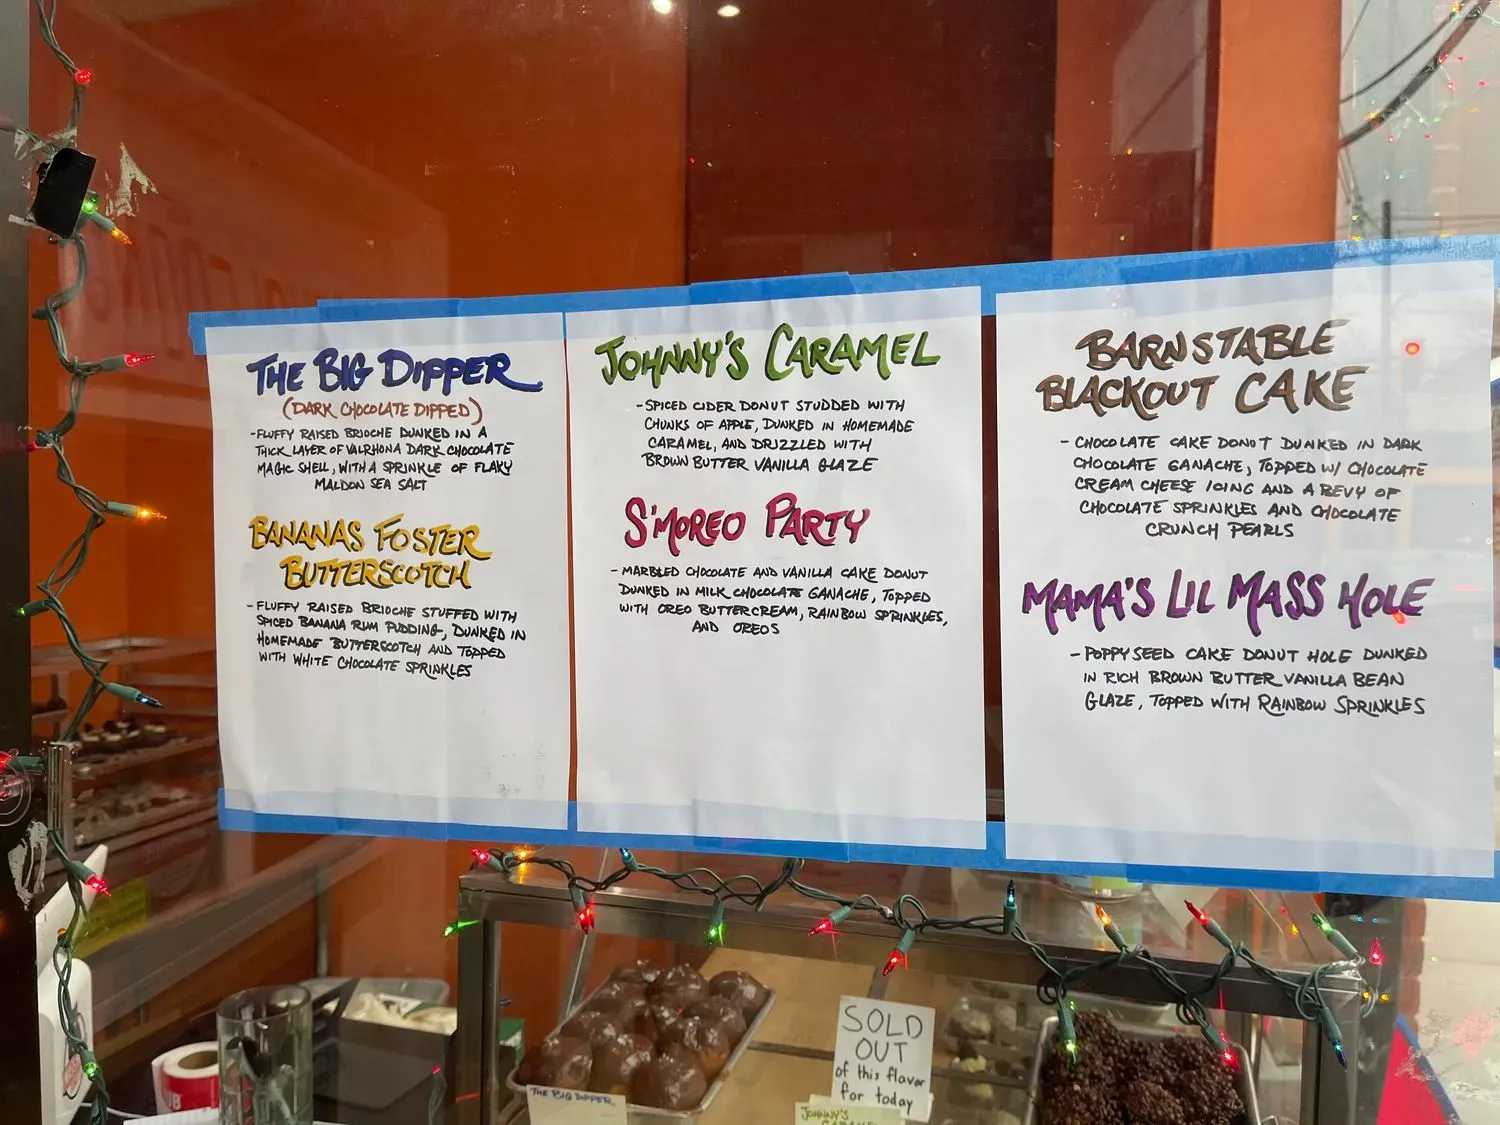 THE BIG DIPPER
(DARK CHOCOLATE DIPPED)
-FLUFFY RAISED BRIOCHE DUNKED IN A
THICK LAYER OF VALRHONA DARK CHOCOLATE
MAGIC SHELL, WITH A SPRINKLE OF FLAKY
MALDON SEA SALT
BANANAS FOSTER
BUTTERSCOTCH
-FLUFFY RAISED BRIOCHE STUFFED WITH
SPICED BANANA RUM PUDDING, DUNKED IN
HOMEMADE BUTTERSCOTCH AND TOPPED
WITH WHITE CHOCOLATE SPRINKLES
JOHNNY'S CARAMEL
-SPICED CIDER DONUT STUDDED WITH
CHUNKS OF APPLE, DUNKED IN HOMEMADE
CARAMEL, AND DRIZZLED WITH
BROWN BUTTER VANILLA GLAZE
S'MOREO PARTY
-MARBLED CHOCOLATE AND VANILLA CAKE DONUT
DUNKED IN MILK CHOCOLATE GANACHE, TOPPED
WITH OREO BUTTERCREAM, RAINBOW SPRINKLES,
AND OREOS
BARNSTABLE
BLACKOUT CAKE
- CHOCOLATE CAKE DONUT DUNKED IN DARK
CHOCOLATE GANACHE, TOPPED W/ CHOCOLATE
CREAM CHEESE ICING AND A BEVY OF
CHOCOLATE SPRINKLES AND CHOCOLATE
CRUNCH PEARLS
MAMA'S LIL MASS HOLE
-POPPYSEED CAKE DONUT HOLE DUNKED
IN RICH BROWN BUTTER VANILLA BEAN
GLAZE, TOPPED WITH RAINBOW SPRINKLES
SOLD
OUT
of this flavor
for today
THE BIG DIPPER
JOHNNY'S
CARAMEL